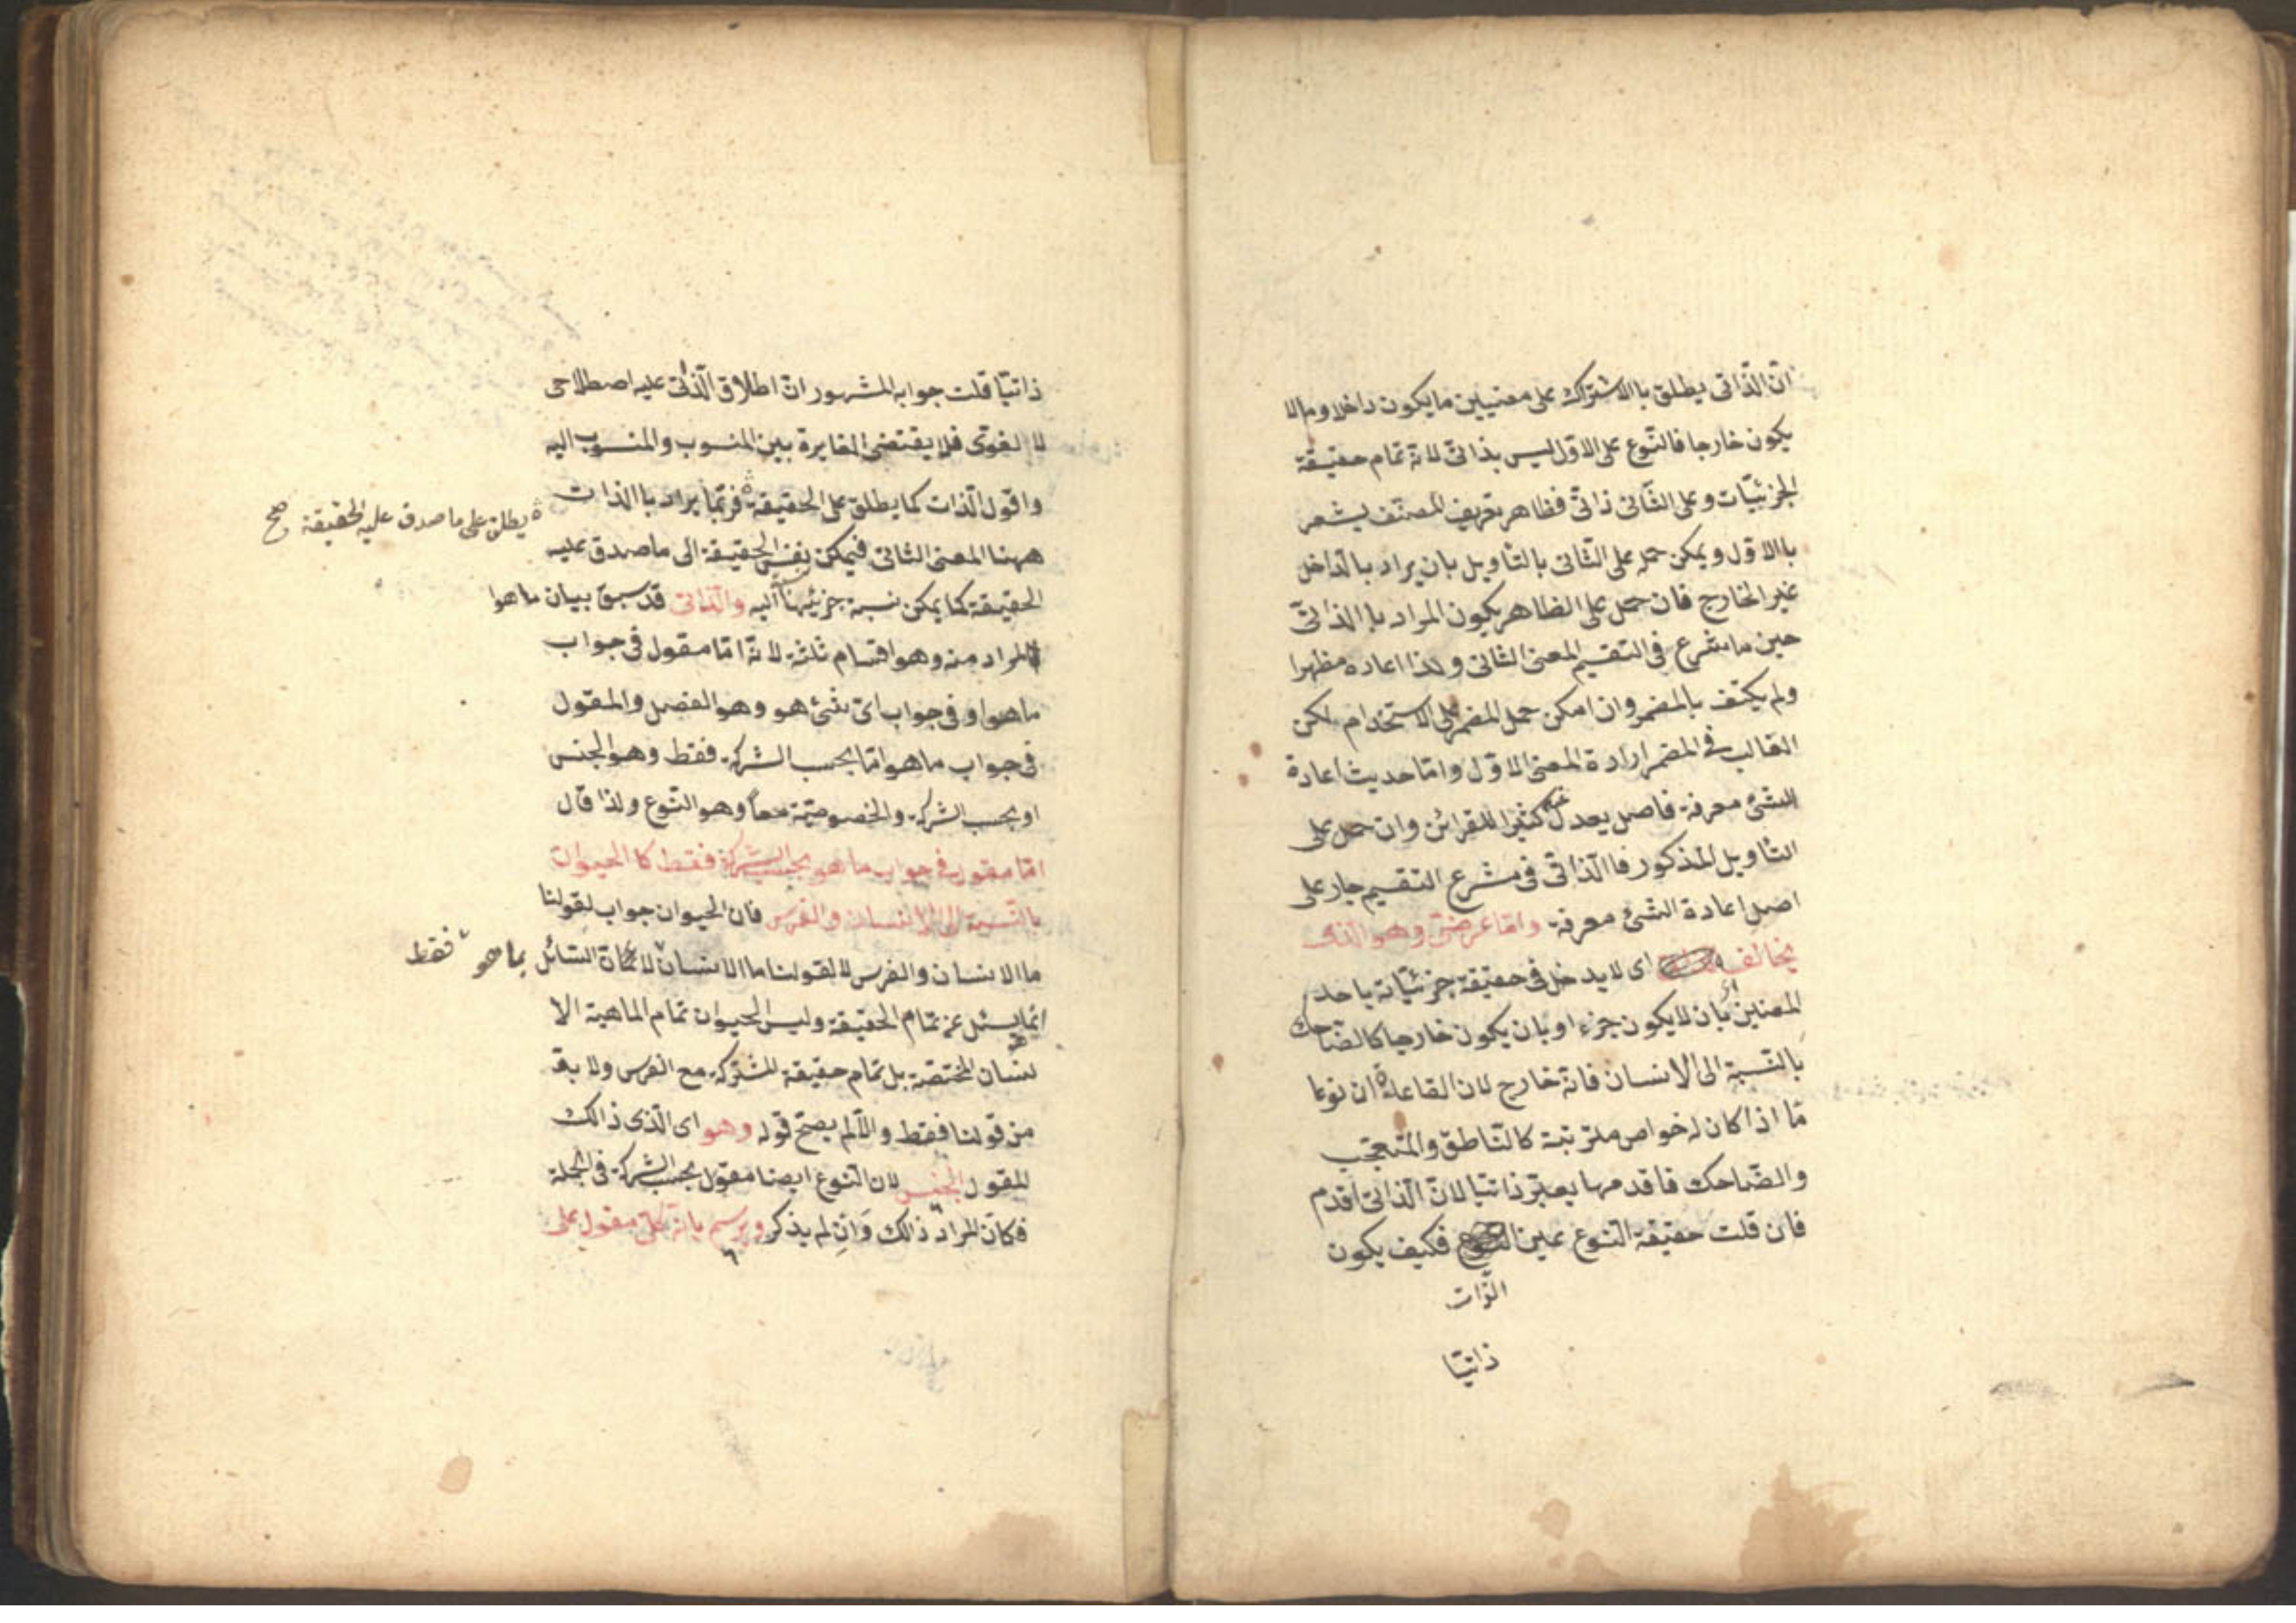 انّ الذّاتى يطلق باالاشتراك على معنيين ما يكون داخلا وما لا
يكون خارجا فالنّوع على الاوّل ليس بذاتىّ لانه تمام حقيقة
الجزئيّات وعلى الثّانى ذاتىّ فظاهر تعريف المصنّف يشعر
باالاوّل ويمكن حمله على الثّانى بالتّاويل بان يراد باالدّاخل
غير الخارج فان حمل على الظاهر يكون المراد باالذاتىّ
حين ما شرع فى التقسيم المعنى الثانى ولذا اعاده مظهرا
ولم يكتف بالمضمر وان امكن حمل المضمر على الاستخدام لكن
الغالب فى المضمر ارادة المعنى الاوّل وامّا حديث اعادة
الشئ معرفة فاصل يعدل عنه كثيرا للقرائن وان حمل على
التاويل المذكور فاالذّاتىّ فى مشرع التقسيم جار على
اصل اعادة الشئ معرفة وامّا عرضىّ وهو الذى
يخالفه اى لا يدخل فى حقيقة جزئيّاته باحد
المعنيين اىْ بان لا يكون جزء او بان يكون خارجا كالضّاحك
بالنّسبة الى الانسان فانّه خارج لان القاعدة ان نوعا
مّا اذا كان له خواص مترتبة كالنّاطق والمتعجّب
والضّاحك فاقدمها يعتبر ذاتيا لانّ الذاتىّ اقدم
فان قلت حقيقة النّوع عين فكيف يكون
الذّات
ذاتيّا
ذاتيّا قلت جوابه المشهور انّ اطلاق الذّاتى عليه اصطلاحى
لا لغوىّ فلا يقتضى المغايرة بين المنسوب والمنسوب اليه
واقول الذّات كما يطلق على الحقيقة فربّما يراد باالذات
يطلق على ما صدق عليه الحقيقة صح
ههنا المعنى الثانى فيمكن نفس الحقيقة الى ما صدق عليه
الحقيقة كما يمكن نسبة جزئيها اليه والذّاتى قد سبق بيان ما هوا
المراد منه وهو اقسام ثلثة لانّه امّا مقول فى جواب
ما هو او فى جواب اىّ شئ هو وهو الفصل والمقول
فى جواب ما هو امّا بحسب الشركة فقط وهو الجنس
او بحسب الشركة والخصوصيّة معاً وهو النّوع ولذا قال
امّا مقول فى جواب ما هو بحسب الشركة فقط كا الحيوان
بالنّسبة الى الانسان والفرس فان الحيوان جواب لقولنا
ما الانسان والفرس لا لقولنا ما الانسان لانّ السّائل بما هو فقط
انّما يسئل عن تمام الحقيقة وليس الحيوان تمام الماهية الا
نسان المختصّة بل تمام حقيقة المشتركة مع الفرس ولا بدّ
من قولنا فقط والّا لم يصحّ قوله وهو اى الّذى ذالك
المقول الجنس لان النّوع ايضا مقول بحسب الشركة فى الجملة
فكانّ المراد ذالك وان لم يذكر ويرسم بانّه كلىّ مقول على